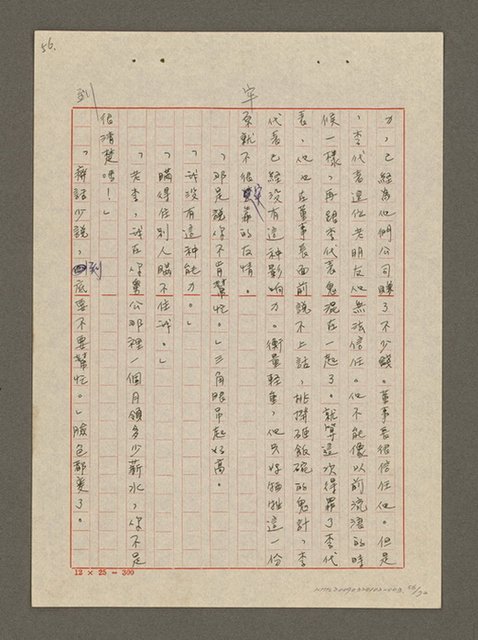 56.
牢
到
力，已經為他們公司賺了不少錢。董事長很信任他。但是
，李代表這位老朋友他無法信任。他不能像以前流浪的時
候一樣，再跟李代表鬼混在一起了。就算這次得罪了李代
表，他也在董事長面前說不上話，挑撥砸飯碗的鬼計，李
代表已經沒有這種影响力。衡量輕重，他只好犧牲這一份
原就不很牢靠的友情。
「那是說你不肯幫忙。」三角眼吊起好高。
「我沒有這種能力。」
「瞞得住別人瞞不住我。」
「老李，我在你舅公那裡一個月領多少薪水，你不是
很清楚嗎！」
「癈話少說，到底要不要幫忙。」臉色都變了。
12 × 25 = 300